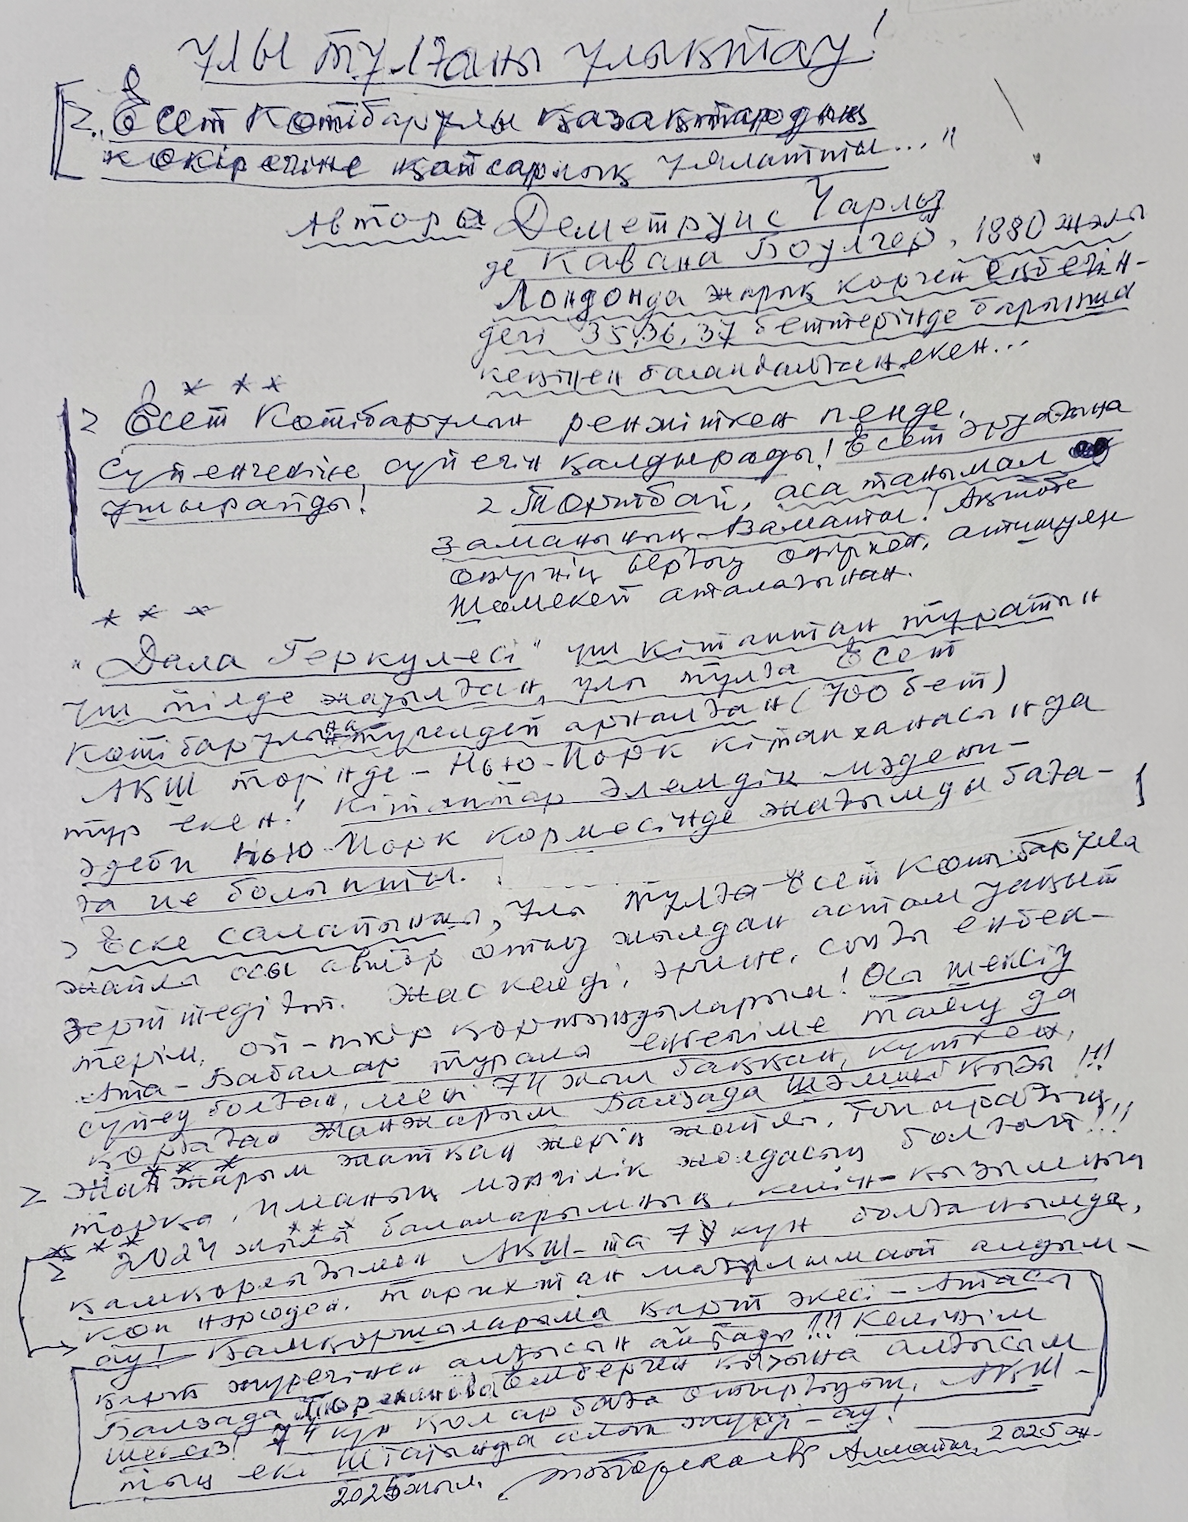 Ұлы тұлғаны ұлықтау!
„Есет Көтібарұлы қазақтардың
көкірегіне қайсарлық ұялатты..."
Авторы Деметруис Чарльз
де Кавана Боулгер, 1880 жылы
Лондонда жарық көрген еңбегін-
дегі 35,36,37 беттерінде барынша
кеңінен баяндалған екен...
* * *
Есет Көтібарұлын ренжіткен пенде,
сүйенгеніне сүйегін қалдырады! Есет аруағына
ұшырайды!
Тортбай, аса танымал
заманының азаматы! Ақтөбе
өңірінің
Шөмекей аталағынан.
* * *
"Дала Геркулесі" үш кітаптан тұратын
үш тілде жазылған, ұлы тұлға Есет
Көтібарұлына түгелдей арналған (700 бет)
АҚШ төрінде - Нью-Йорк кітапханасында
тұр екен! Кітаптар әлемдік мәдени-
әдеби Нью-Йорк көрмесінде жағымды баға-
ға ие болыпты.
Еске салатыны, ұлы тұлға Есет Көтібарұлы
жайлы осы автор отыз жылдан астам уақыт
зерттеді ғой. Жас келді, әрине, соңғы еңбек-
терім, ой-пікір қорытындыларым! Осы шексіз
Ата-Бабалар туралы еңбегіме таяну да
сүйеу болған, мені 74 жыл баққан, күткен,
қорғаған жанжарым Балзада Шәмшіқызы!!!
* * *
Жан жарым жатқан жерің жайлы, топырағың
торқа, иманың мәңгілік жолдасың болғай!!!
* * *
2024 жылы балаларымның, келін-қызымның
қамқорлығымен АҚШ-та 78 күн болғанымда,
көп нәрсеге, тарихтан мағлұмат алдым-
ау! Қамқоршыларыма қарт әкесі - Атасы
жүрегінен алғысын айтады!!! Келінім
Балзада Елбергеи қызына алғысым
шексіз! 74 күн қоларбаға отырғызып, АҚШ-
тың екі Штатында алып жүрді-ау!
2025 жыл. Алматы, 2025 ж.